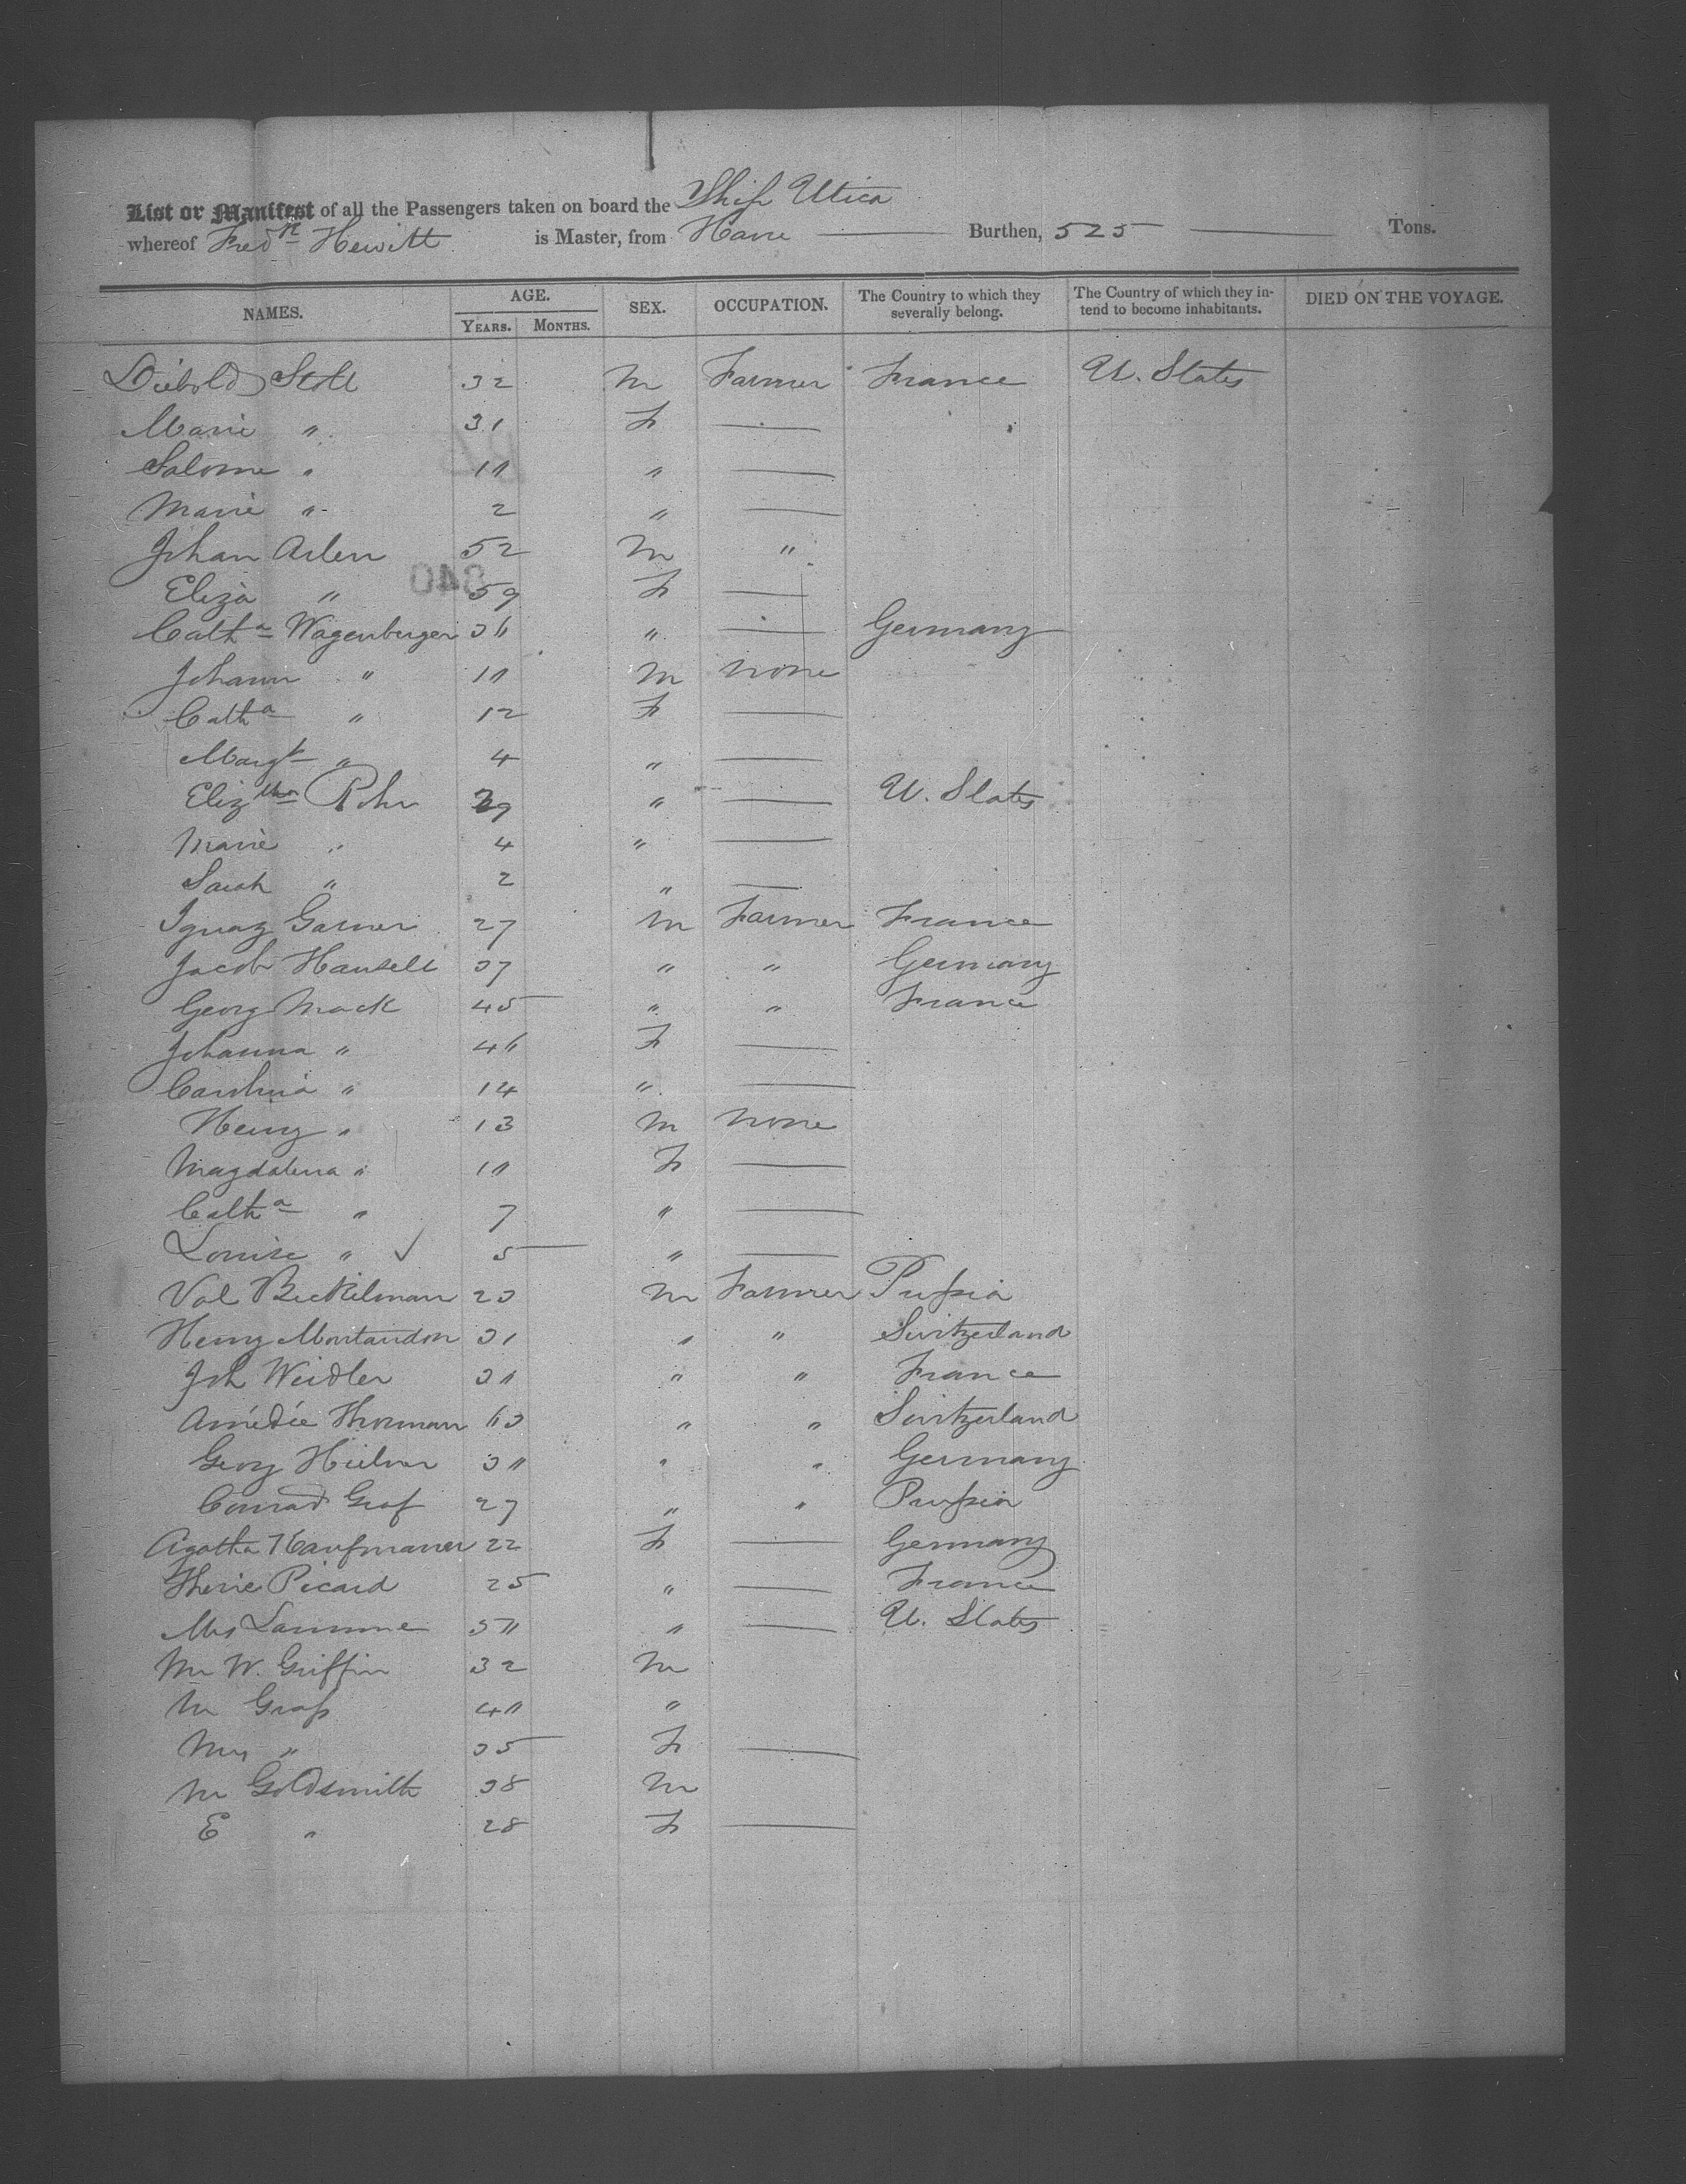 List or Manifest of all the Passengers taken on board the Ship Utica
whereof Fredk Hewitt is Master, from Havre Burthen, 525 Tons.
NAMES. AGE. YEARS. MONTHS. SEX. OCCUPATION. The Country to which they severally belong. The Country of which they intend to become inhabitants. DIED ON THE VOYAGE.
Diebold Stoll 32 M Farmer France U. States
Marie " 31 F
Salome " 10 "
Marie " 2 "
Johan Arlen 52 M "
Eliza " 59 F
Catha Wagenberger 36 " Germany
Johann " 10 M none
Catha " 12 F
Margt " 4 "
Elizth Rohr 29 " U. States
Marie " 4 "
Sarah " 2 "
Ignaz Garner 27 M Farmer France
Jacob Hansell 37 " " Germany
Georg Mack 45 " " France
Johanna " 46 F
Carolina " 14 "
Henry " 13 M none
Magdalena " 10 F
Catha " 7 "
Louise " 5 "
Val Beckelman 23 M Farmer Prussia
Henry Montandon 31 " " Switzerland
Joh Weidler 30 " " France
Amédée Thorman 63 " " Switzerland
Georg 30 " " Germany
Conrad Graf 27 " " Prussia
Agatha Kaufmann 22 F Germany
Picard 25 " France
Mrs 50 " U. States
Mr W. Griffin 32 M
Mr Grass 40 "
Mrs " 35 F
Mr Goldsmith 38 M
E " 28 F